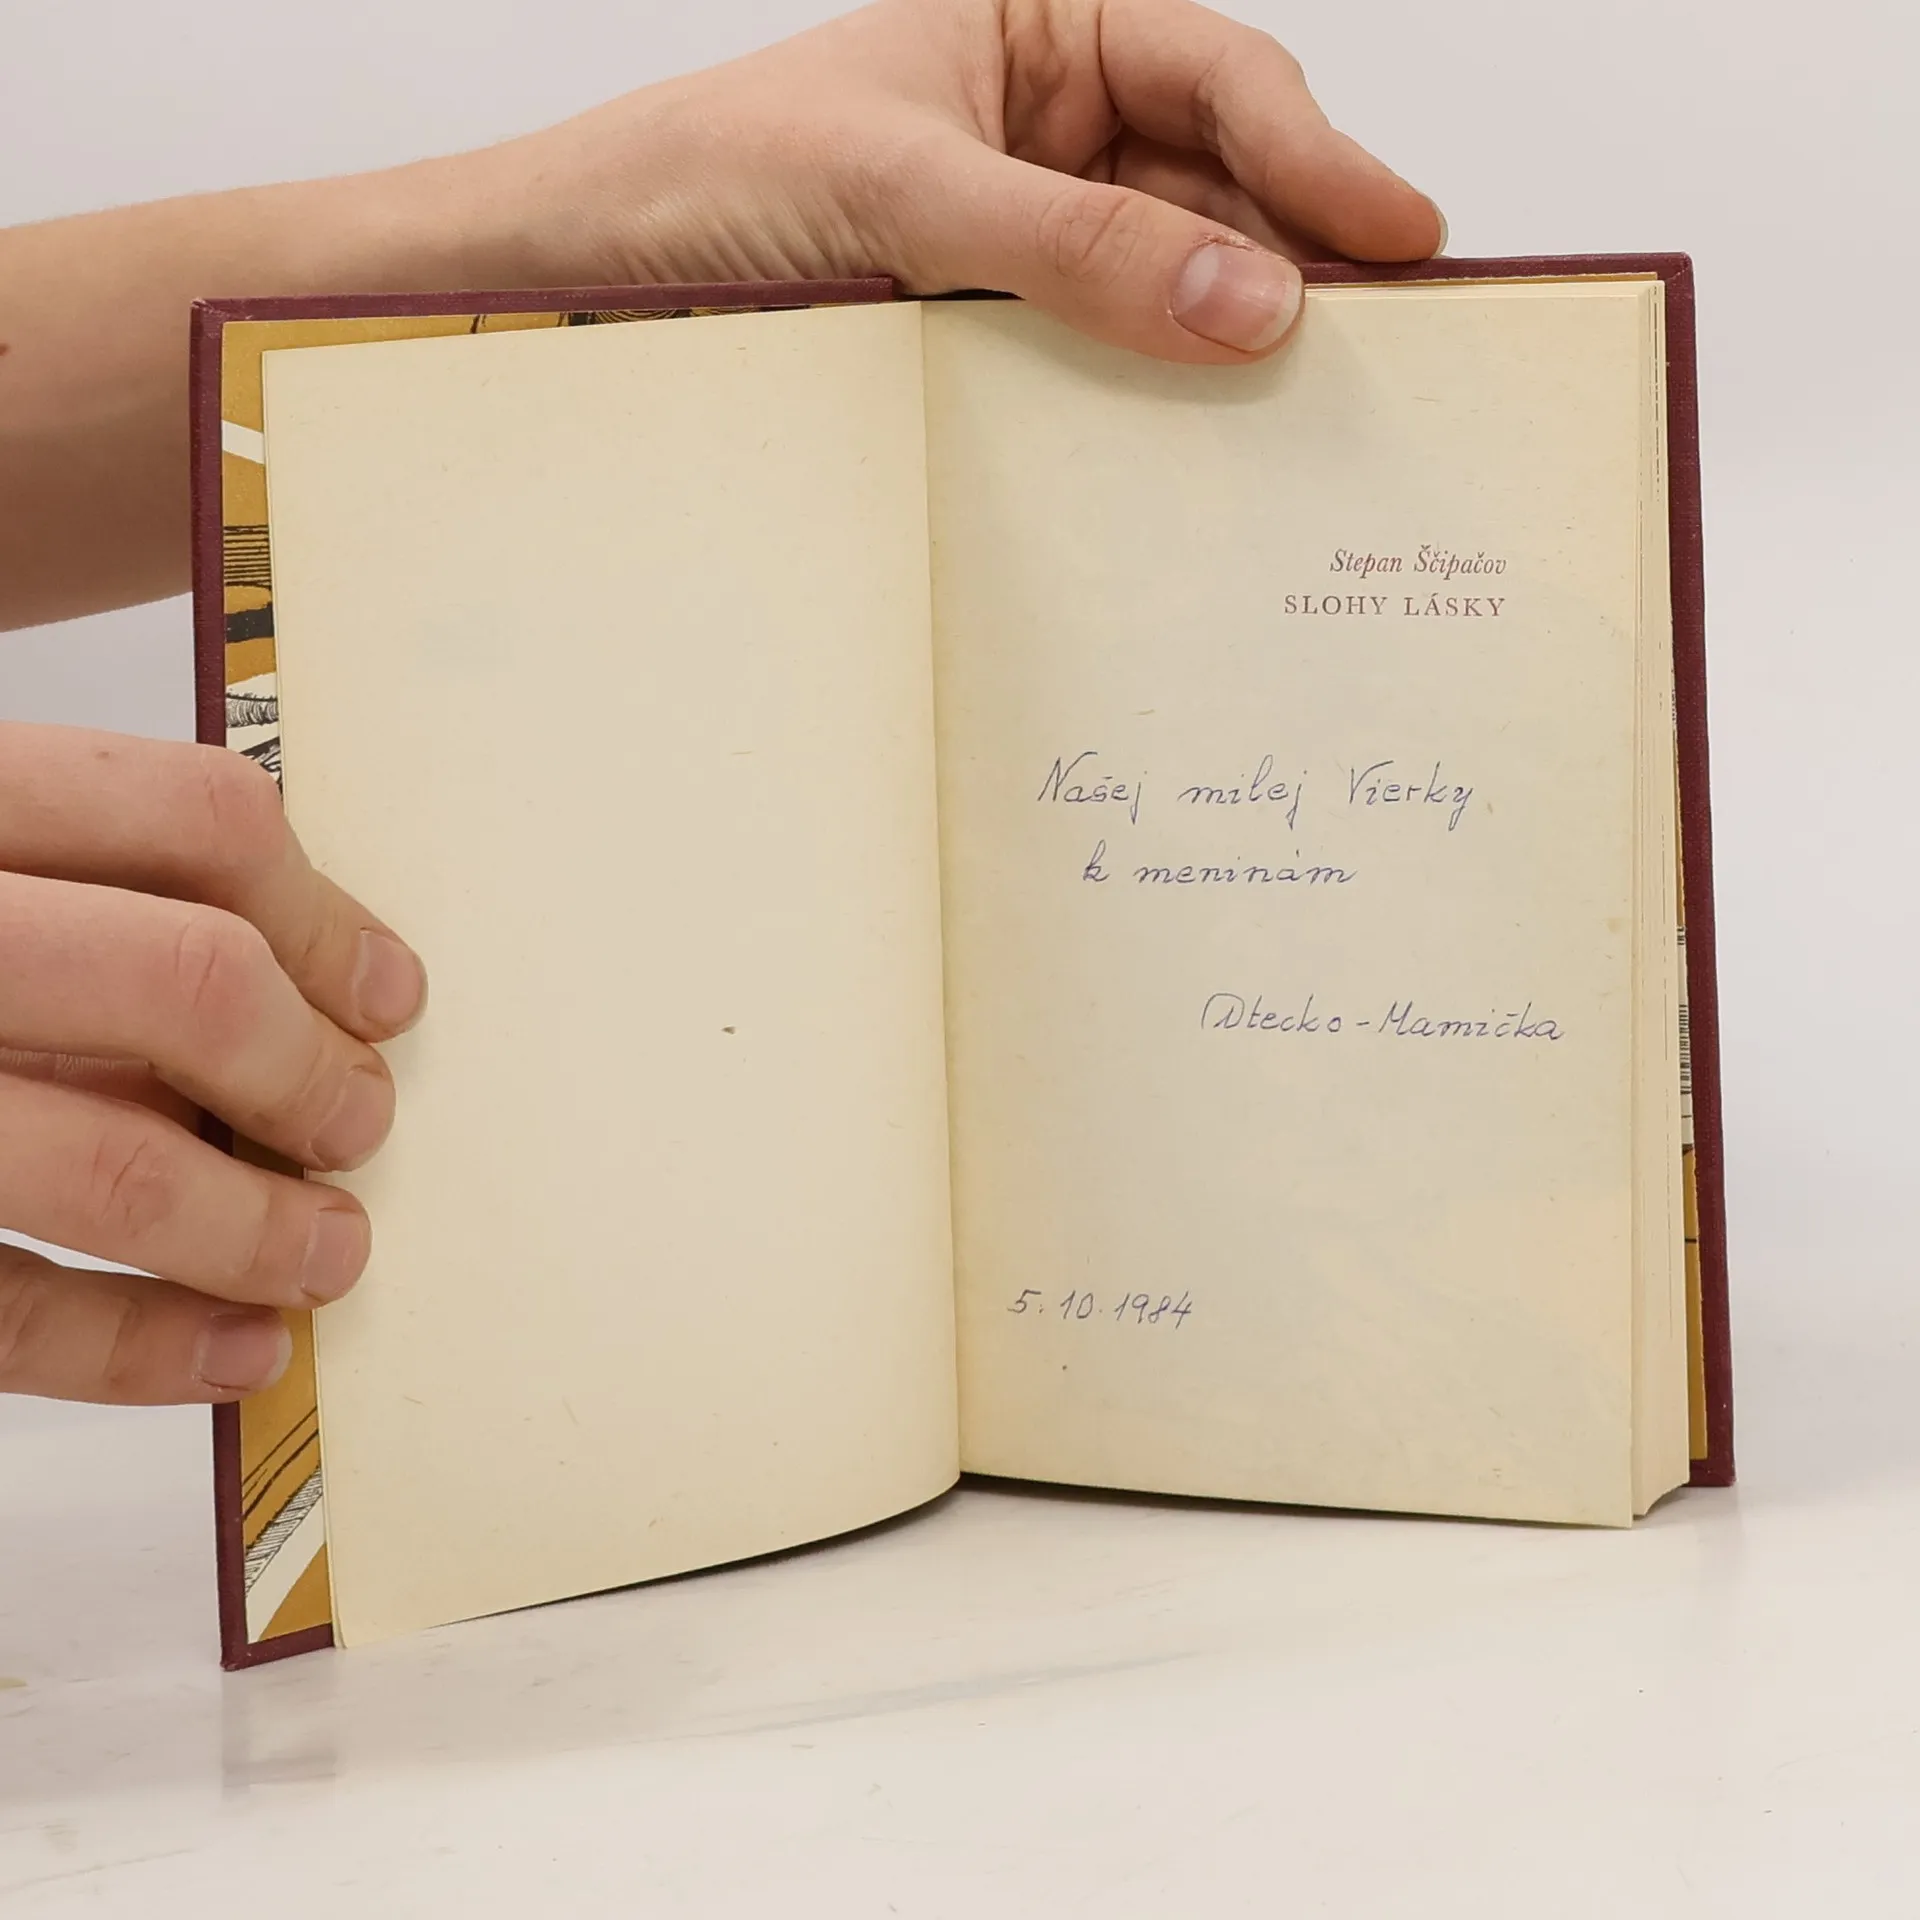 Stepan Ščipačov
SLOHY LÁSKY
Našej milej Vierky
k meninám
Otecko - Mamička
5. 10. 1984